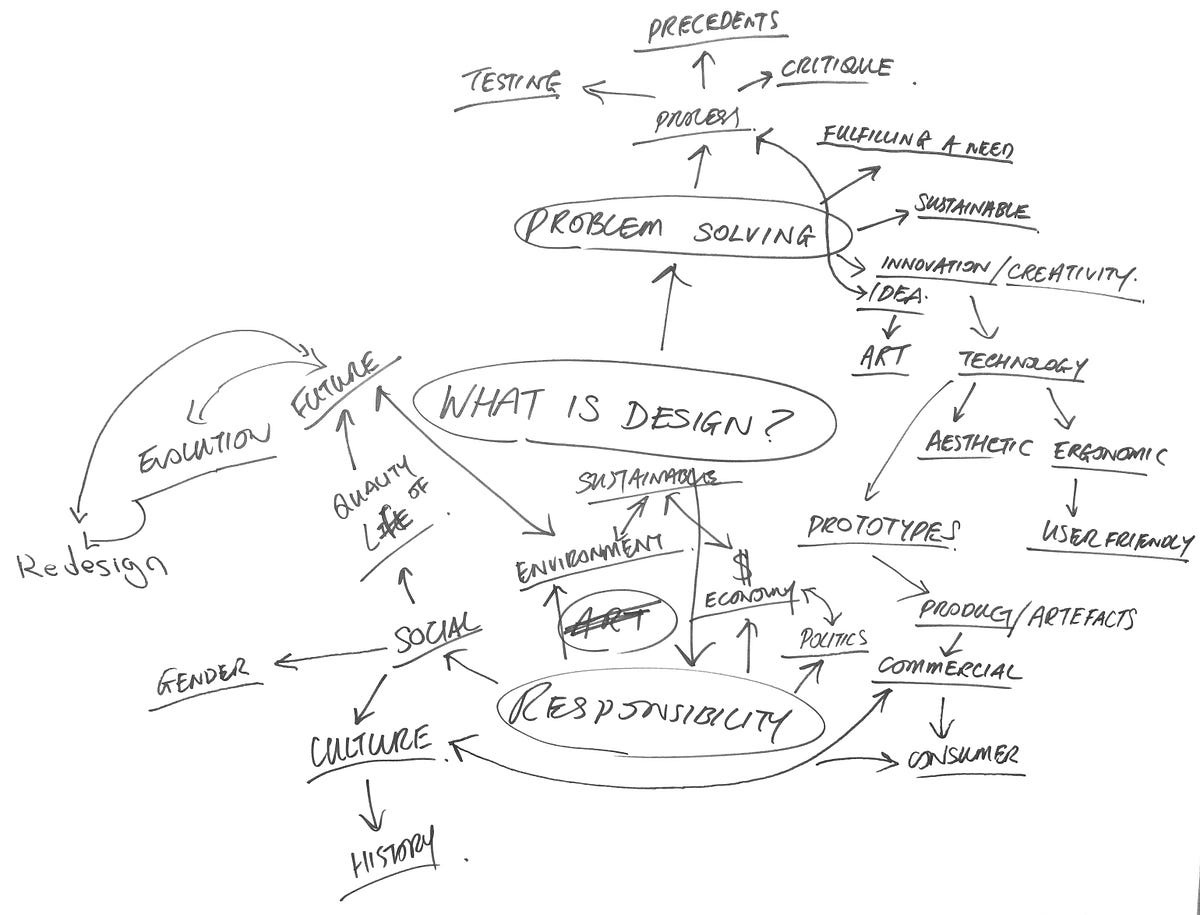 PRECEDENTS
TESTING
CRITIQUE.
PROCESS
FULFILLING A NEED
SUSTAINABLE
PROBLEM SOLVING
INNOVATION/CREATIVITY.
IDEA.
ART
TECHNOLOGY
FUTURE
WHAT IS DESIGN?
EVOLUTION
AESTHETIC
ERGONOMIC
QUALITY
OF
LIFE
SUSTAINABLE
Redesign
ENVIRONMENT
PROTOTYPES
USER FRIENDLY
$
ECONOMY
ART
PRODUCT/ARTEFACTS
SOCIAL
POLITICS
GENDER
COMMERCIAL
RESPONSIBILITY
CULTURE.
CONSUMER
HISTORY.